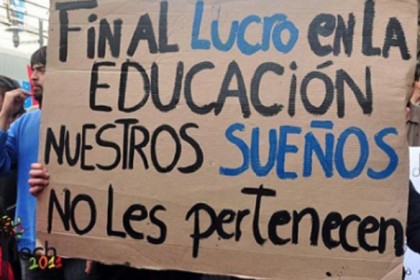 FINAL LUCRO EN LA
EDUCACIÓN
NUESTROS SUEÑOS
NO LES PERTENECEN
ech
2011